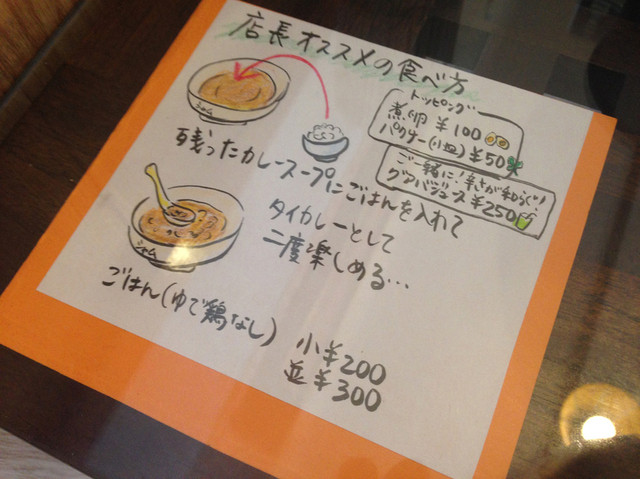 店長オススメの食べ方
トッピング
煮卵 ¥100
パクチー(小皿) ¥50
ご一緒に!辛さが和らぐ!
グアバジュース ¥250
シャム
残ったカレースープにごはんを入れて
タイカレーとして
二度楽しめる…
シャム
ごはん(ゆで鶏なし)
小¥200
並¥300